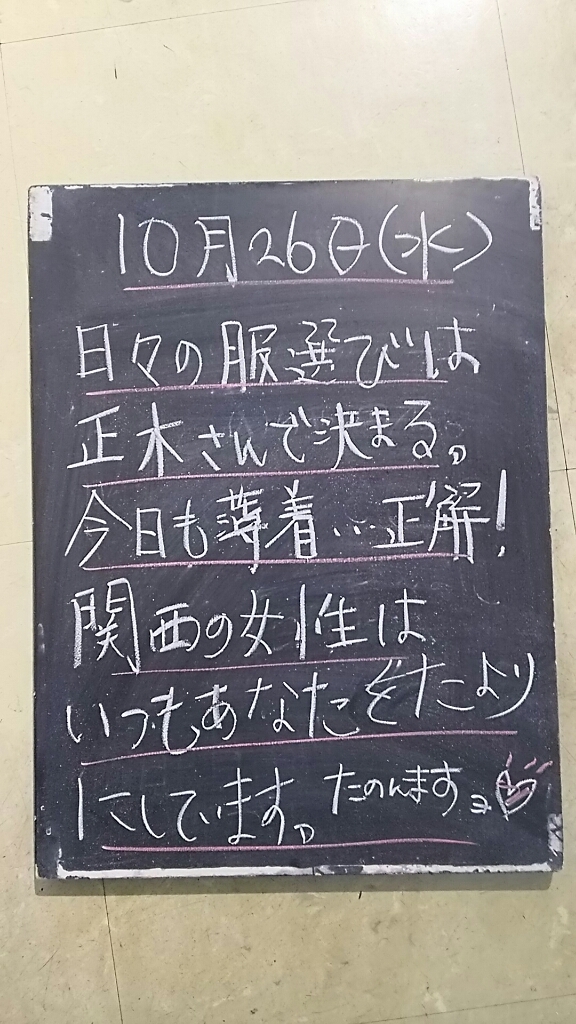 10月26日(水)
日々の服選びは
正木さんで決まる。
今日も薄着…正解!
関西の女性は
いつもあなたをたより
にしています。たのんますョ